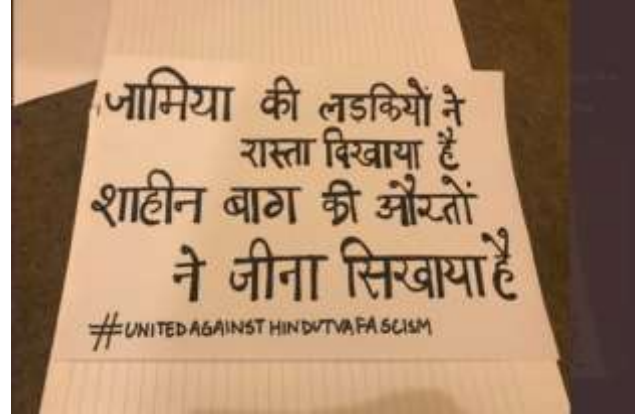 जामिया की लडकियों ने
रास्ता दिखाया है
शाहीन बाग की औरतों
ने जीना सिखाया है
#UNITED AGAINST HINDUTVA FASCISM